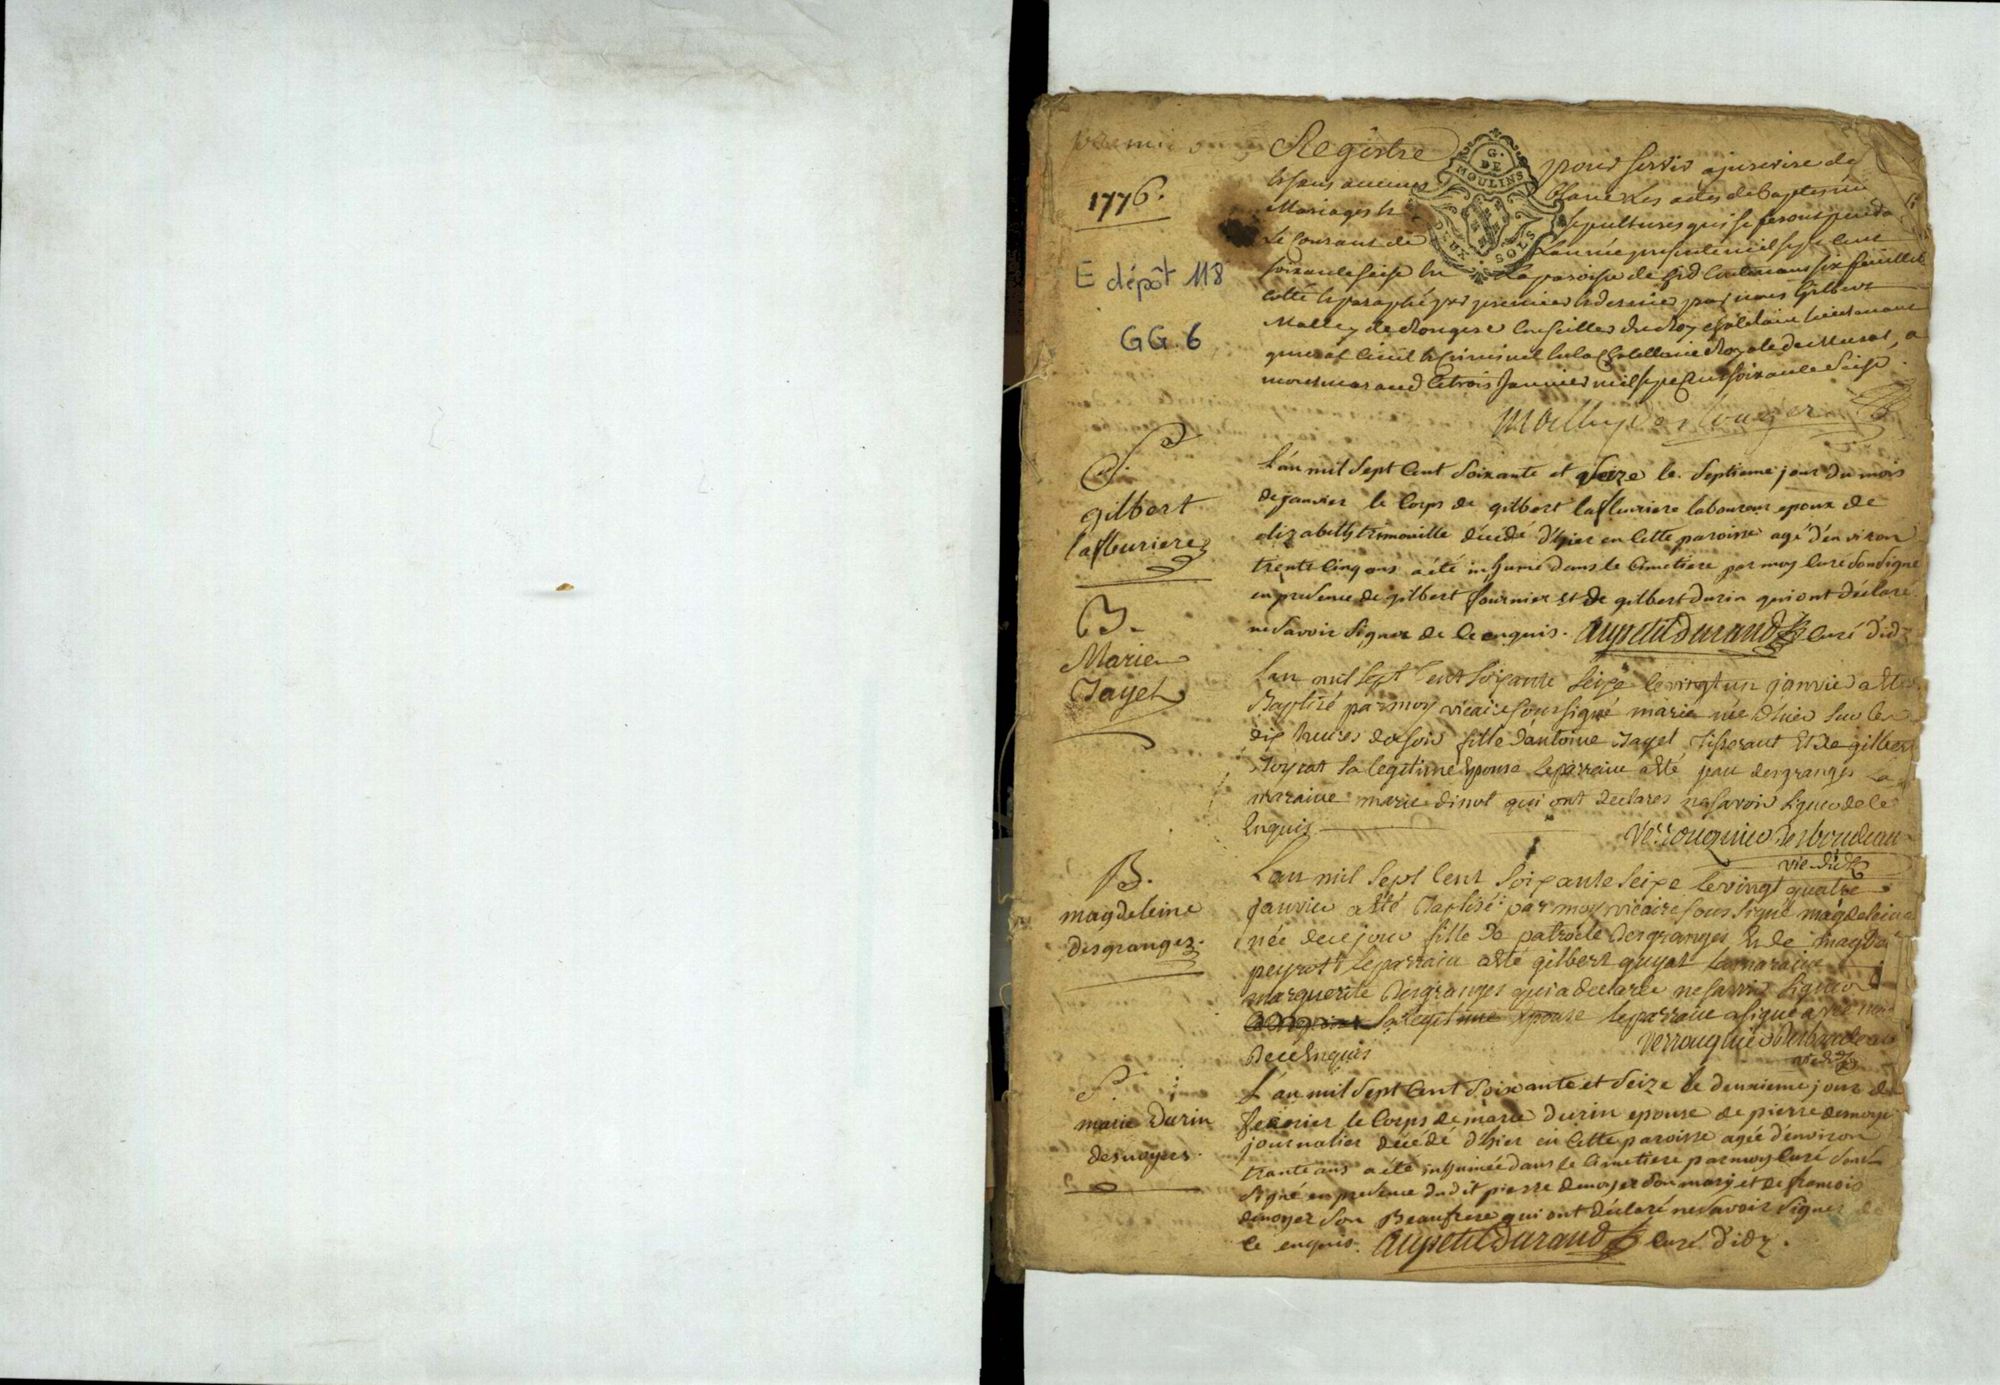 premie
Registre pour servir a inscrire de
suite et sans aucuns blanc les actes de baptesme
Mariages et sepultures qui se feront penda
Le Courant de L'année presente mil sept cent
soixante seise En La paroisse de six feuillet
cotté et paraphé par premier et dernier par nous Gilbert
Malley de Rongere Conseiller du Roy Chatelain Lieutenant
general Civil et Criminel En la Chatellanie Royale de Murat, a
montmaraud Le trois Janvier mil sept Cent soixante Seise
1776.
E dépôt 118
GG. 6
G.
DE
MOULINS
DEUX SOLS
S.
gilbert
lafleuriere
L'an mil Sept Cent Soixante et Seize le Septieme jour du mois
de janvier le Corps de gilbert lafleuriere laboureur epoux de
elizabeth trimouille décédé d'hier en Cette paroisse agé d'environ
trente Cinq ans a été inhumé dans le Cimetiere par moy Curé Soussigné
en presence de gilbert fournier et de gilbert durin qui ont déclaré
ne Savoir Signer de Ce enquis. Aupetit Durand Curé d'idz
B.
Marie
Jayet
L'an mil sept Cent soixante seize le vingt un janvier a eté
Baptisé par moy vicaire soussigné marie née d'hier sur les
dix heures du soir fille d'antoine Jayet Tisserant Et de gilber
sa legitime Epouse le parrain a eté jean desgranges La
maraine marie dinot qui ont declarés ne savoir signer de ce
Enquis Verrouquier Desbordeau
vic d'idz
B.
magdeleine
desgranges.
L'an mil sept Cent soixante seize le vingt quatre
janvier a eté Baptisé par moy vicaire sous signé magdeleine
née de ce jour fille de patrocle desgranges Et de magde
peyrot le parrain a eté gilbert guyot La maraine
marguerite Desgranges qui a declaree ne savoir signer
sa legitime epouse le parrain a signé avec nous
De ce Enquis Verrouquier Desbordeau
vic d'idz
S.
marie Durin
desnoyers.
L'an mil Sept Cent Soixante et Seize le deuxieme jour de
fevrier le Corps de marie Durin epouse de pierre denoye
journalier décédé d'hier en Cette paroisse agée d'environ
trante ans a été inhumée dans le Cimetiere par moy Curé Sous
Signé en presence du dit pierre denoyer Son mary et de francois
denoyer Son Beaufrere qui ont déclaré ne Savoir Signer de
Ce enquis. Aupetit Durand Curé d'idz.